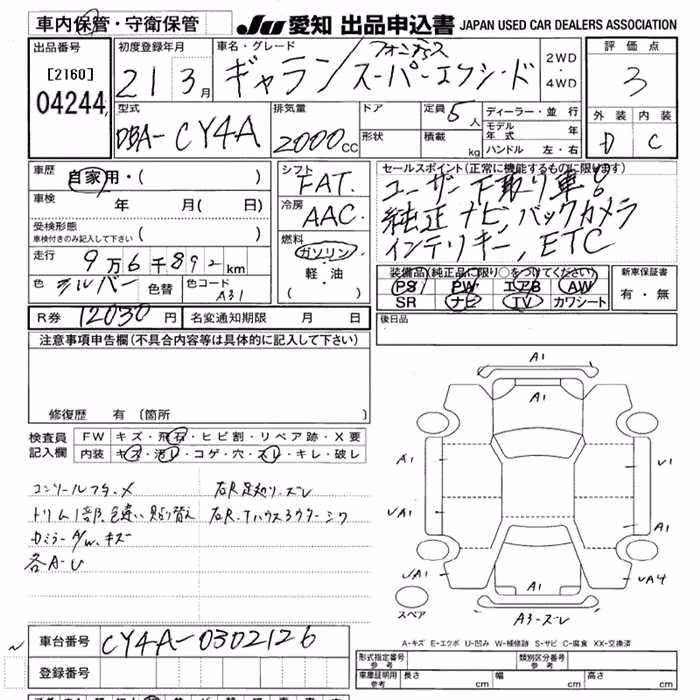 車内保管・守衛保管
JU 愛知 出品申込書 JAPAN USED CAR DEALERS ASSOCIATION
出品番号
[2160]
04244
初度登録年月
21 3月
車名・グレード
ギャラン
フォルティス
スーパーエクシード
2WD
4WD
評価点
3
外装 内装
D C
型式
DBA-CY4A
排気量
2000cc
ドア
形状
定員 5人
積載 kg
ディーラー・並行
モデル年式 年
ハンドル 左・右
車歴
自家用・( )
車検 年 月( 日)
受検形態
車検付きのみ記入して下さい ( )
走行 9万6千892km
色 シルバー 色替 色コード A31
シフト
FAT.
冷房
AAC.
燃料
ガソリン
軽・油
( )
セールスポイント(正常に機能するものに限ります)
ユーザー下取り車
純正ナビ,バックカメラ
インテリキー,ETC
装備品(純正品に限り○をつけてください)
PS PW エアB AW
SR ナビ TV カワシート
新車保証書
有・無
後日品
R券 12030円 名変通知期限 月 日
注意事項申告欄(不具合内容等は具体的に記入して下さい)
修復歴 有 (箇所
検査員
記入欄
FW キズ・飛石・ヒビ割・リペア跡・X要
内装 キズ・汚レ・コゲ・穴・スレ・キレ・破レ
コンソールフタ・メ
トリム1部、色違い貼り替え
カミラーA/W.キズ
各A-U
A1
A1
A1
U1
UA1
A1
UA1
A1
UA4
A3-ズレ
スペア
A-キズ E-エクボ U-凹み W-補修跡 S-サビ C-腐食 XX-交換済
車台番号 CY4A-0302126
登録番号
形式指定番号
参考
類別区分番号
参考
車庫証明用
参考
長さ cm 幅 cm 高さ cm